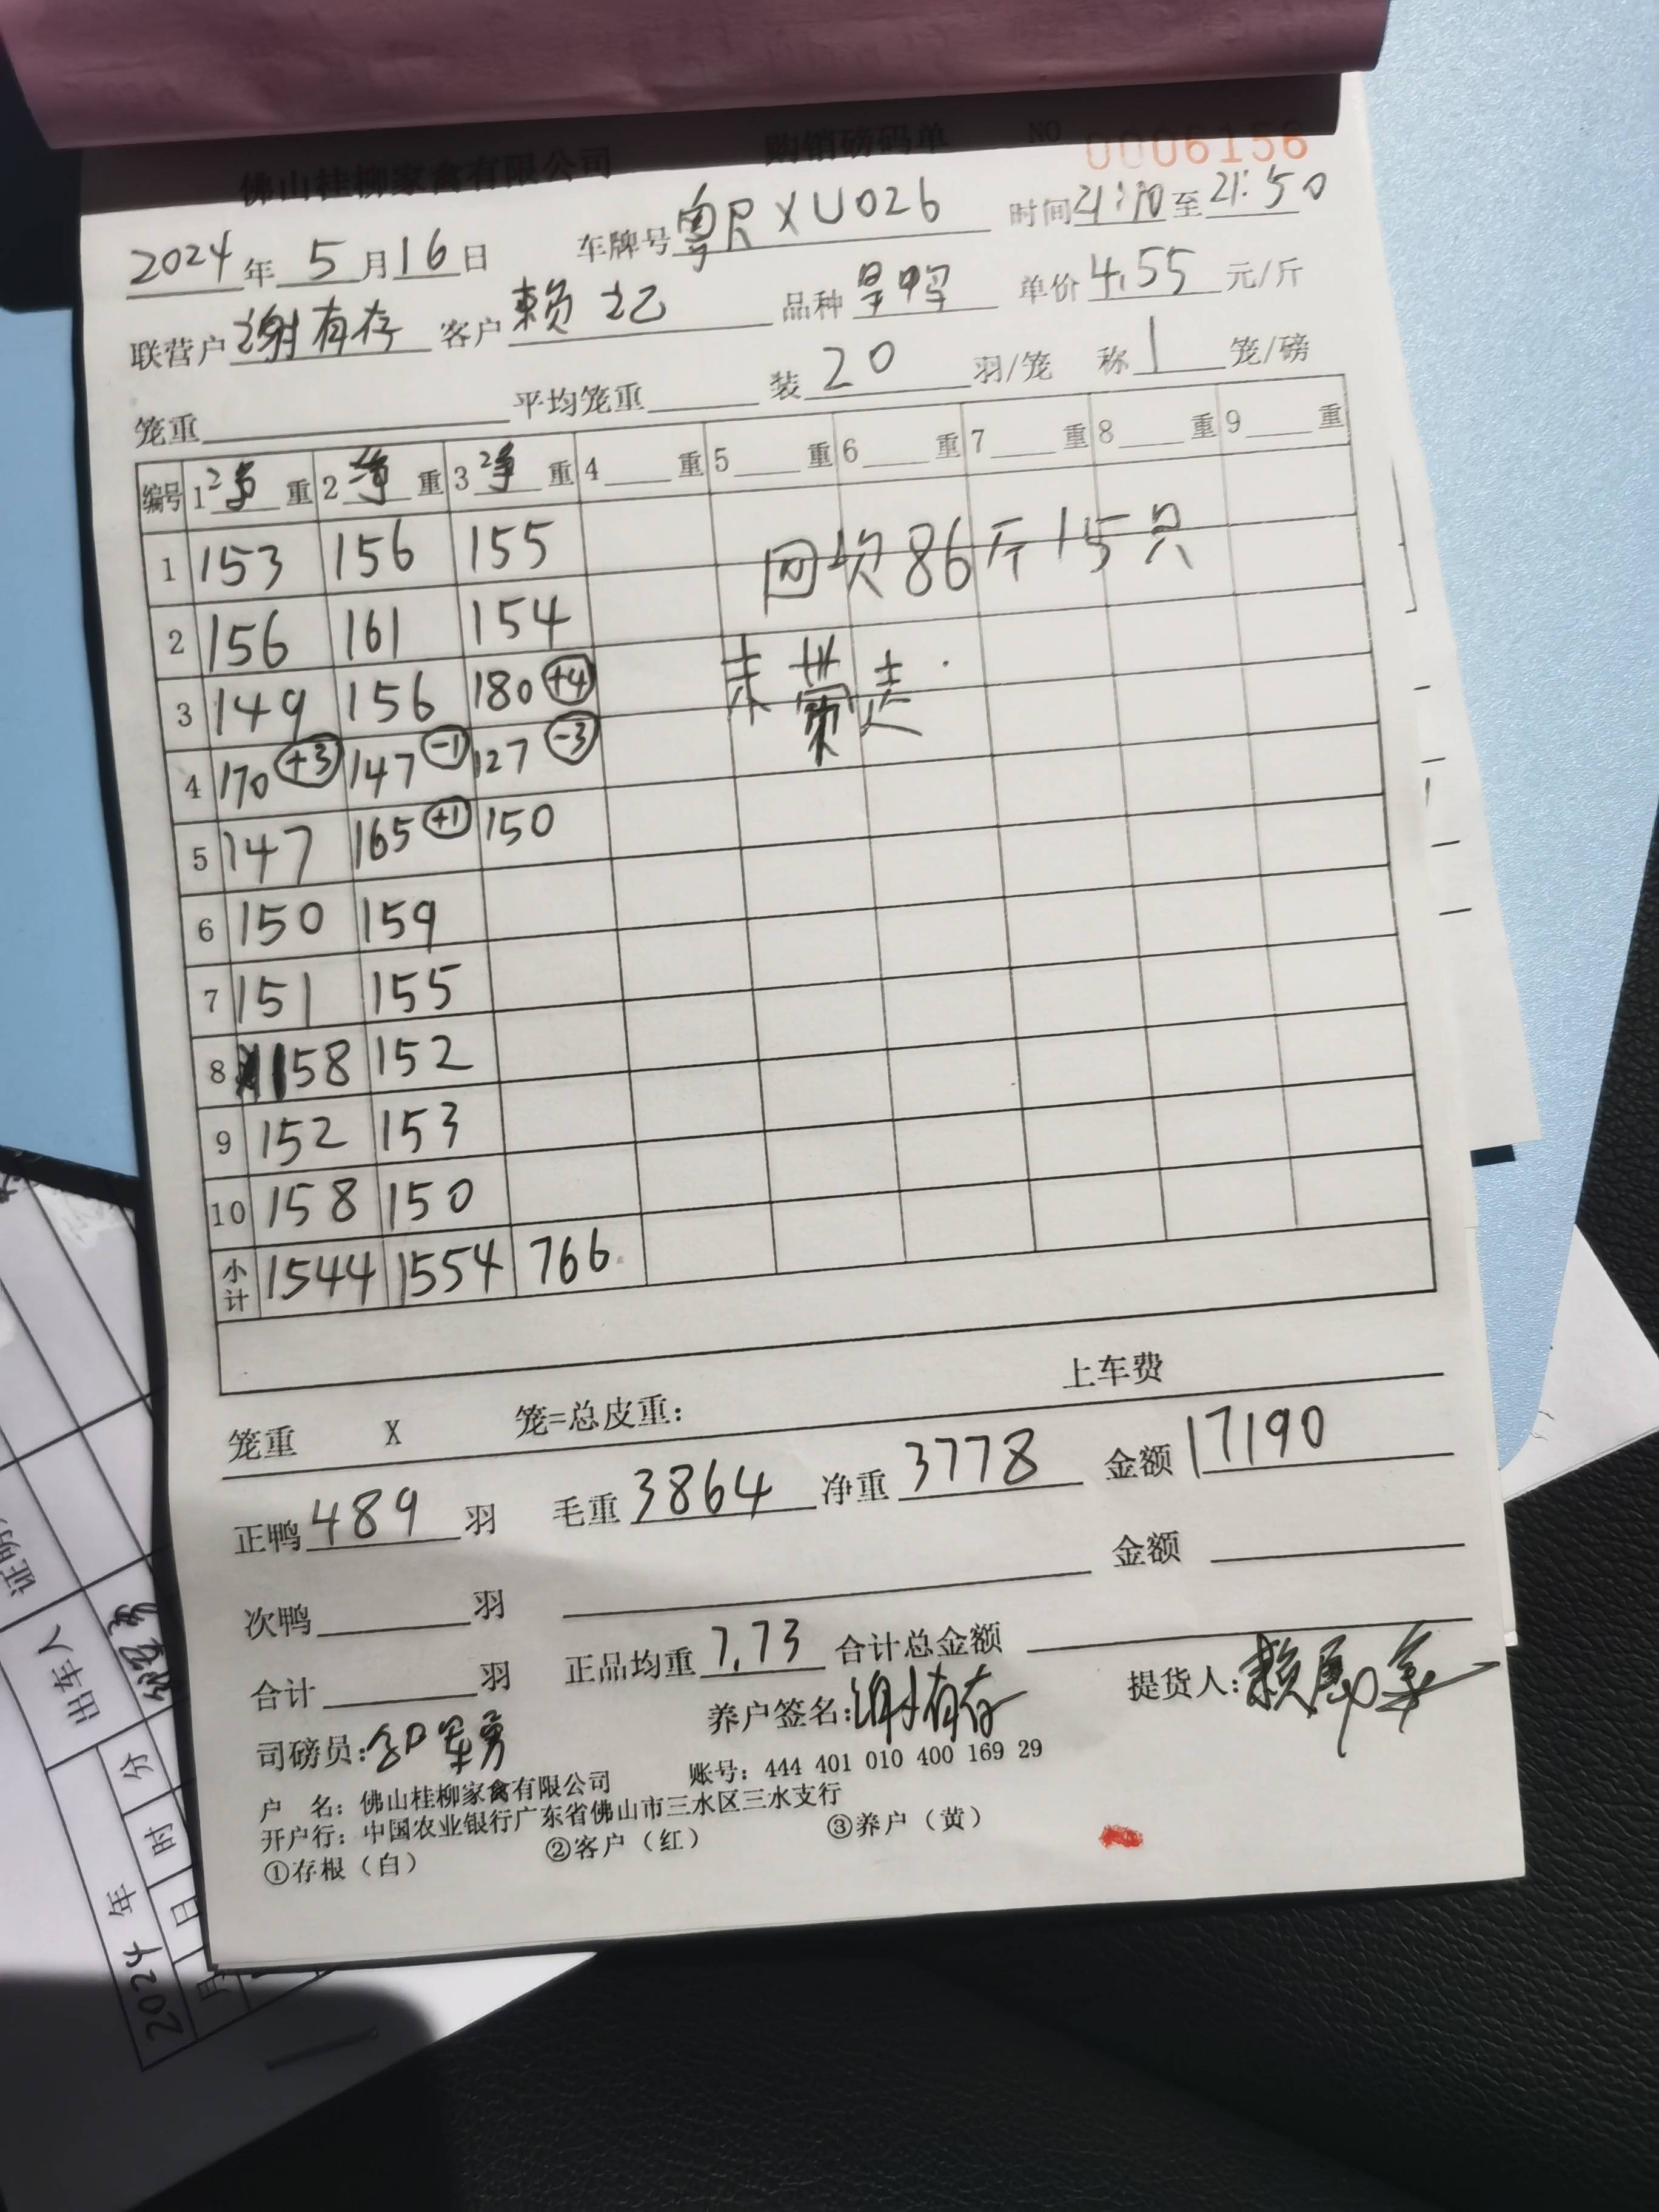 佛山桂柳家禽有限公司 购销磅码单 NO 0006156
2024年 5月16日 车牌号 粤RXU026 时间21:10至21:50
联营户 谢有存 客户 赖记 品种 皇鸭 单价4.55元/斤
笼重 平均笼重 装20羽/笼 称1笼/磅
编号 1净重 2净重 3净重 4重 5重 6重 7重 8重 9重
1 153 156 155 回次86斤15只
2 156 161 154
3 149 156 180 +4 未带走.
4 170 +3 147 -1 127 -3
5 147 165 +1 150
6 150 159
7 151 155
8 158 152
9 152 153
10 158 150
小计 1544 1554 766
上车费
笼重 X 笼=总皮重:
正鸭489羽 毛重3864 净重3778 金额17190
次鸭 羽 金额
合计 羽 正品均重7.73 合计总金额
司磅员: 养户签名:谢有存 提货人:
户 名: 佛山桂柳家禽有限公司 账号: 444 401 010 400 169 29
开户行: 中国农业银行广东省佛山市三水区三水支行
①存根(白) ②客户(红) ③养户(黄)
证明
出车人
2024年
月 日 时 分